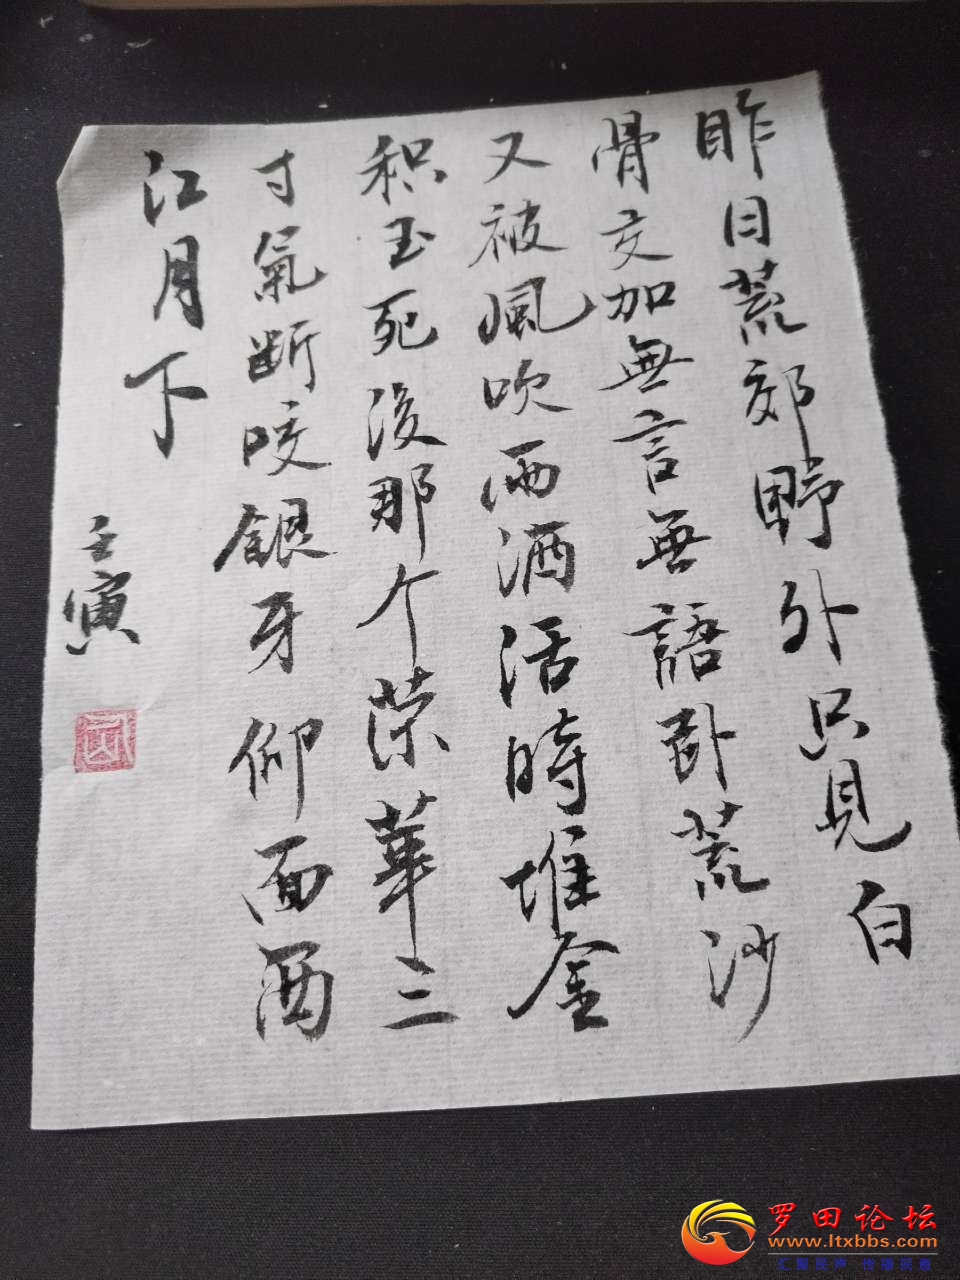 昨日荒郊野外只見白
骨交加無言無語卧荒沙
又被風吹雨洒活時堆金
积玉死後那个荣華三
寸氣断咬銀牙仰面西
江月下
壬寅
罗田论坛
www.ltxbbs.com
汇聚民声 传播民意